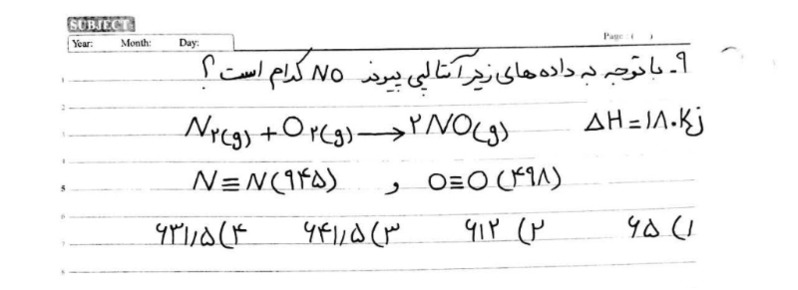 SUBJECT:
Year: Month: Day: Page: ( )
۹- با توجه به داده های زیر آنتالپی پیوند NO کدام است؟
N۲(g) + O۲(g) ⟶ ۲NO(g) ΔH = ۱۸۰Kj
N≡N(۹۴۵) و O=O(۴۹۸)
۱) ۶۵ ۲) ۶۱۲ ۳) ۶۴۱/۵ ۴) ۶۳۱/۵